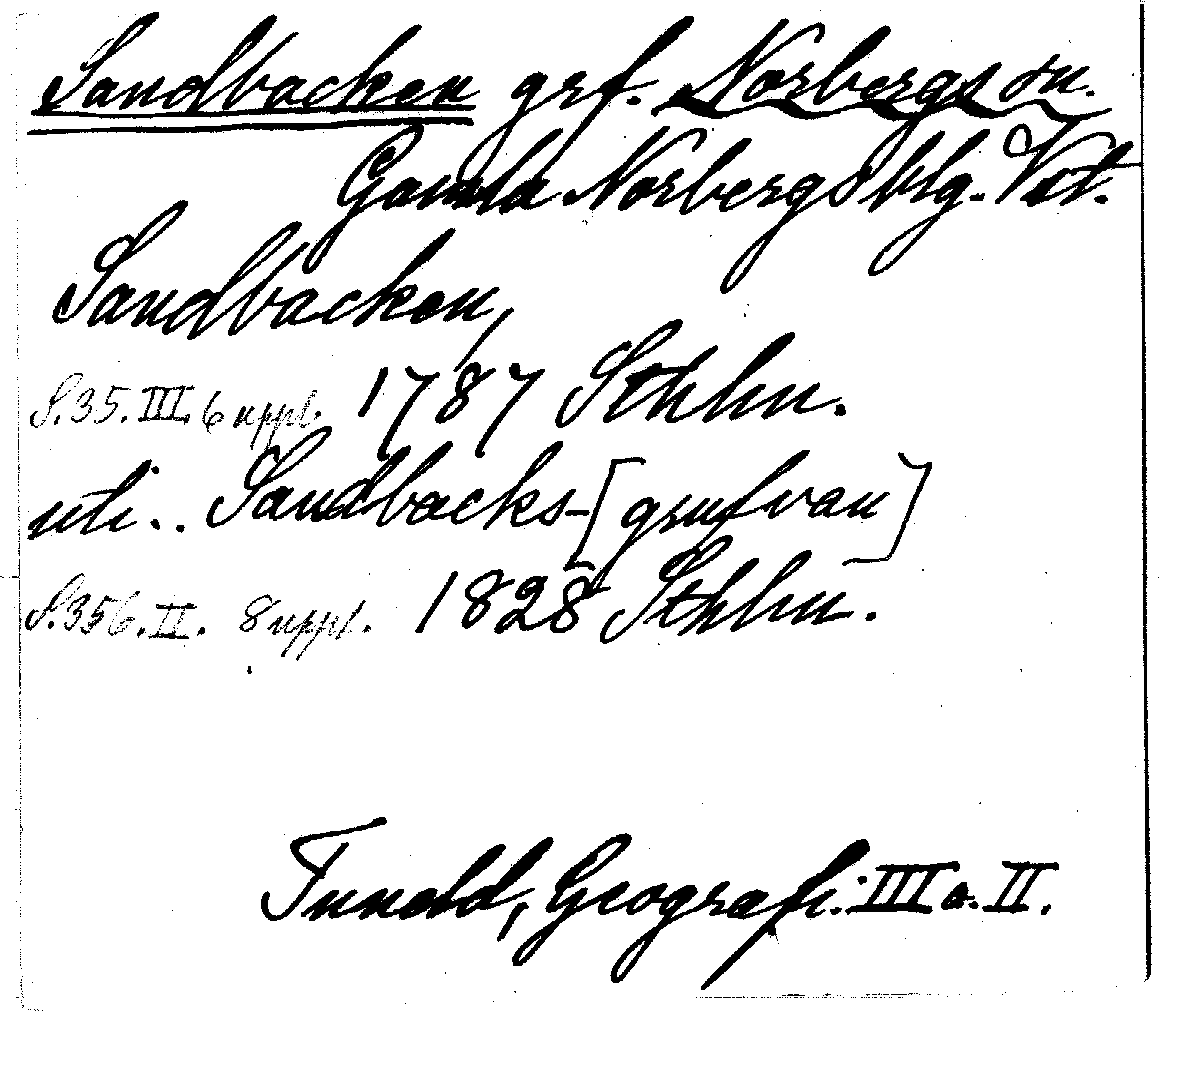 Sandbacken grf. Norbergs sn.
Gamla Norbergs blg. Vstl.
Sandbacken,
S. 35. III. 6 uppl. 1787 Sthlm.
uti .. Sandbacks-[grufvan]
S. 356. II. 8 uppl. 1828 Sthlm.
Tuneld, Geografi. III a. II.